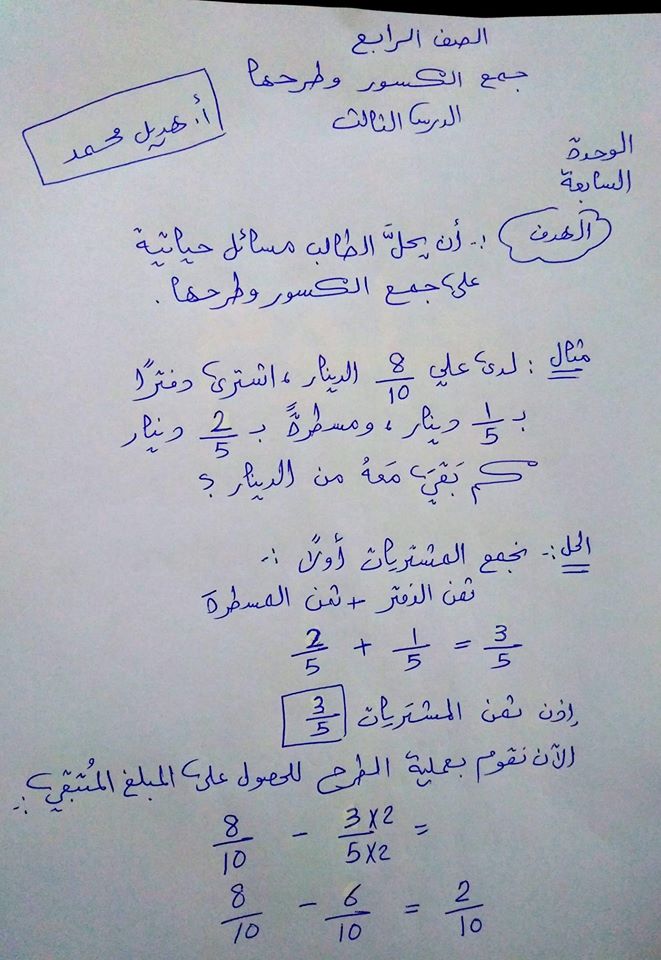 الصف الرابع
جمع الكسور وطرحها
الدرس الثالث
أ. هديل محمد
الوحدة
السابعة
الهدف :- أن يحلَّ الطالب مسائل حياتية
على جمع الكسور وطرحها .
مثال : لدى علي 8/10 الدينار ، اشترى دفترًا
بـ 1/5 دينار ، ومسطرةً بـ 2/5 دينار
كم بَقيَ مَعهُ من الدينار ؟
الحل :- نجمع المشتريات أولًا :-
ثمن الدفتر + ثمن المسطرة
2/5 + 1/5 = 3/5
إذن ثمن المشتريات 3/5
الآن نقوم بعملية الطرح للحصول على المبلغ المُتبقي :-
8/10 - 3×2/5×2 =
8/10 - 6/10 = 2/10